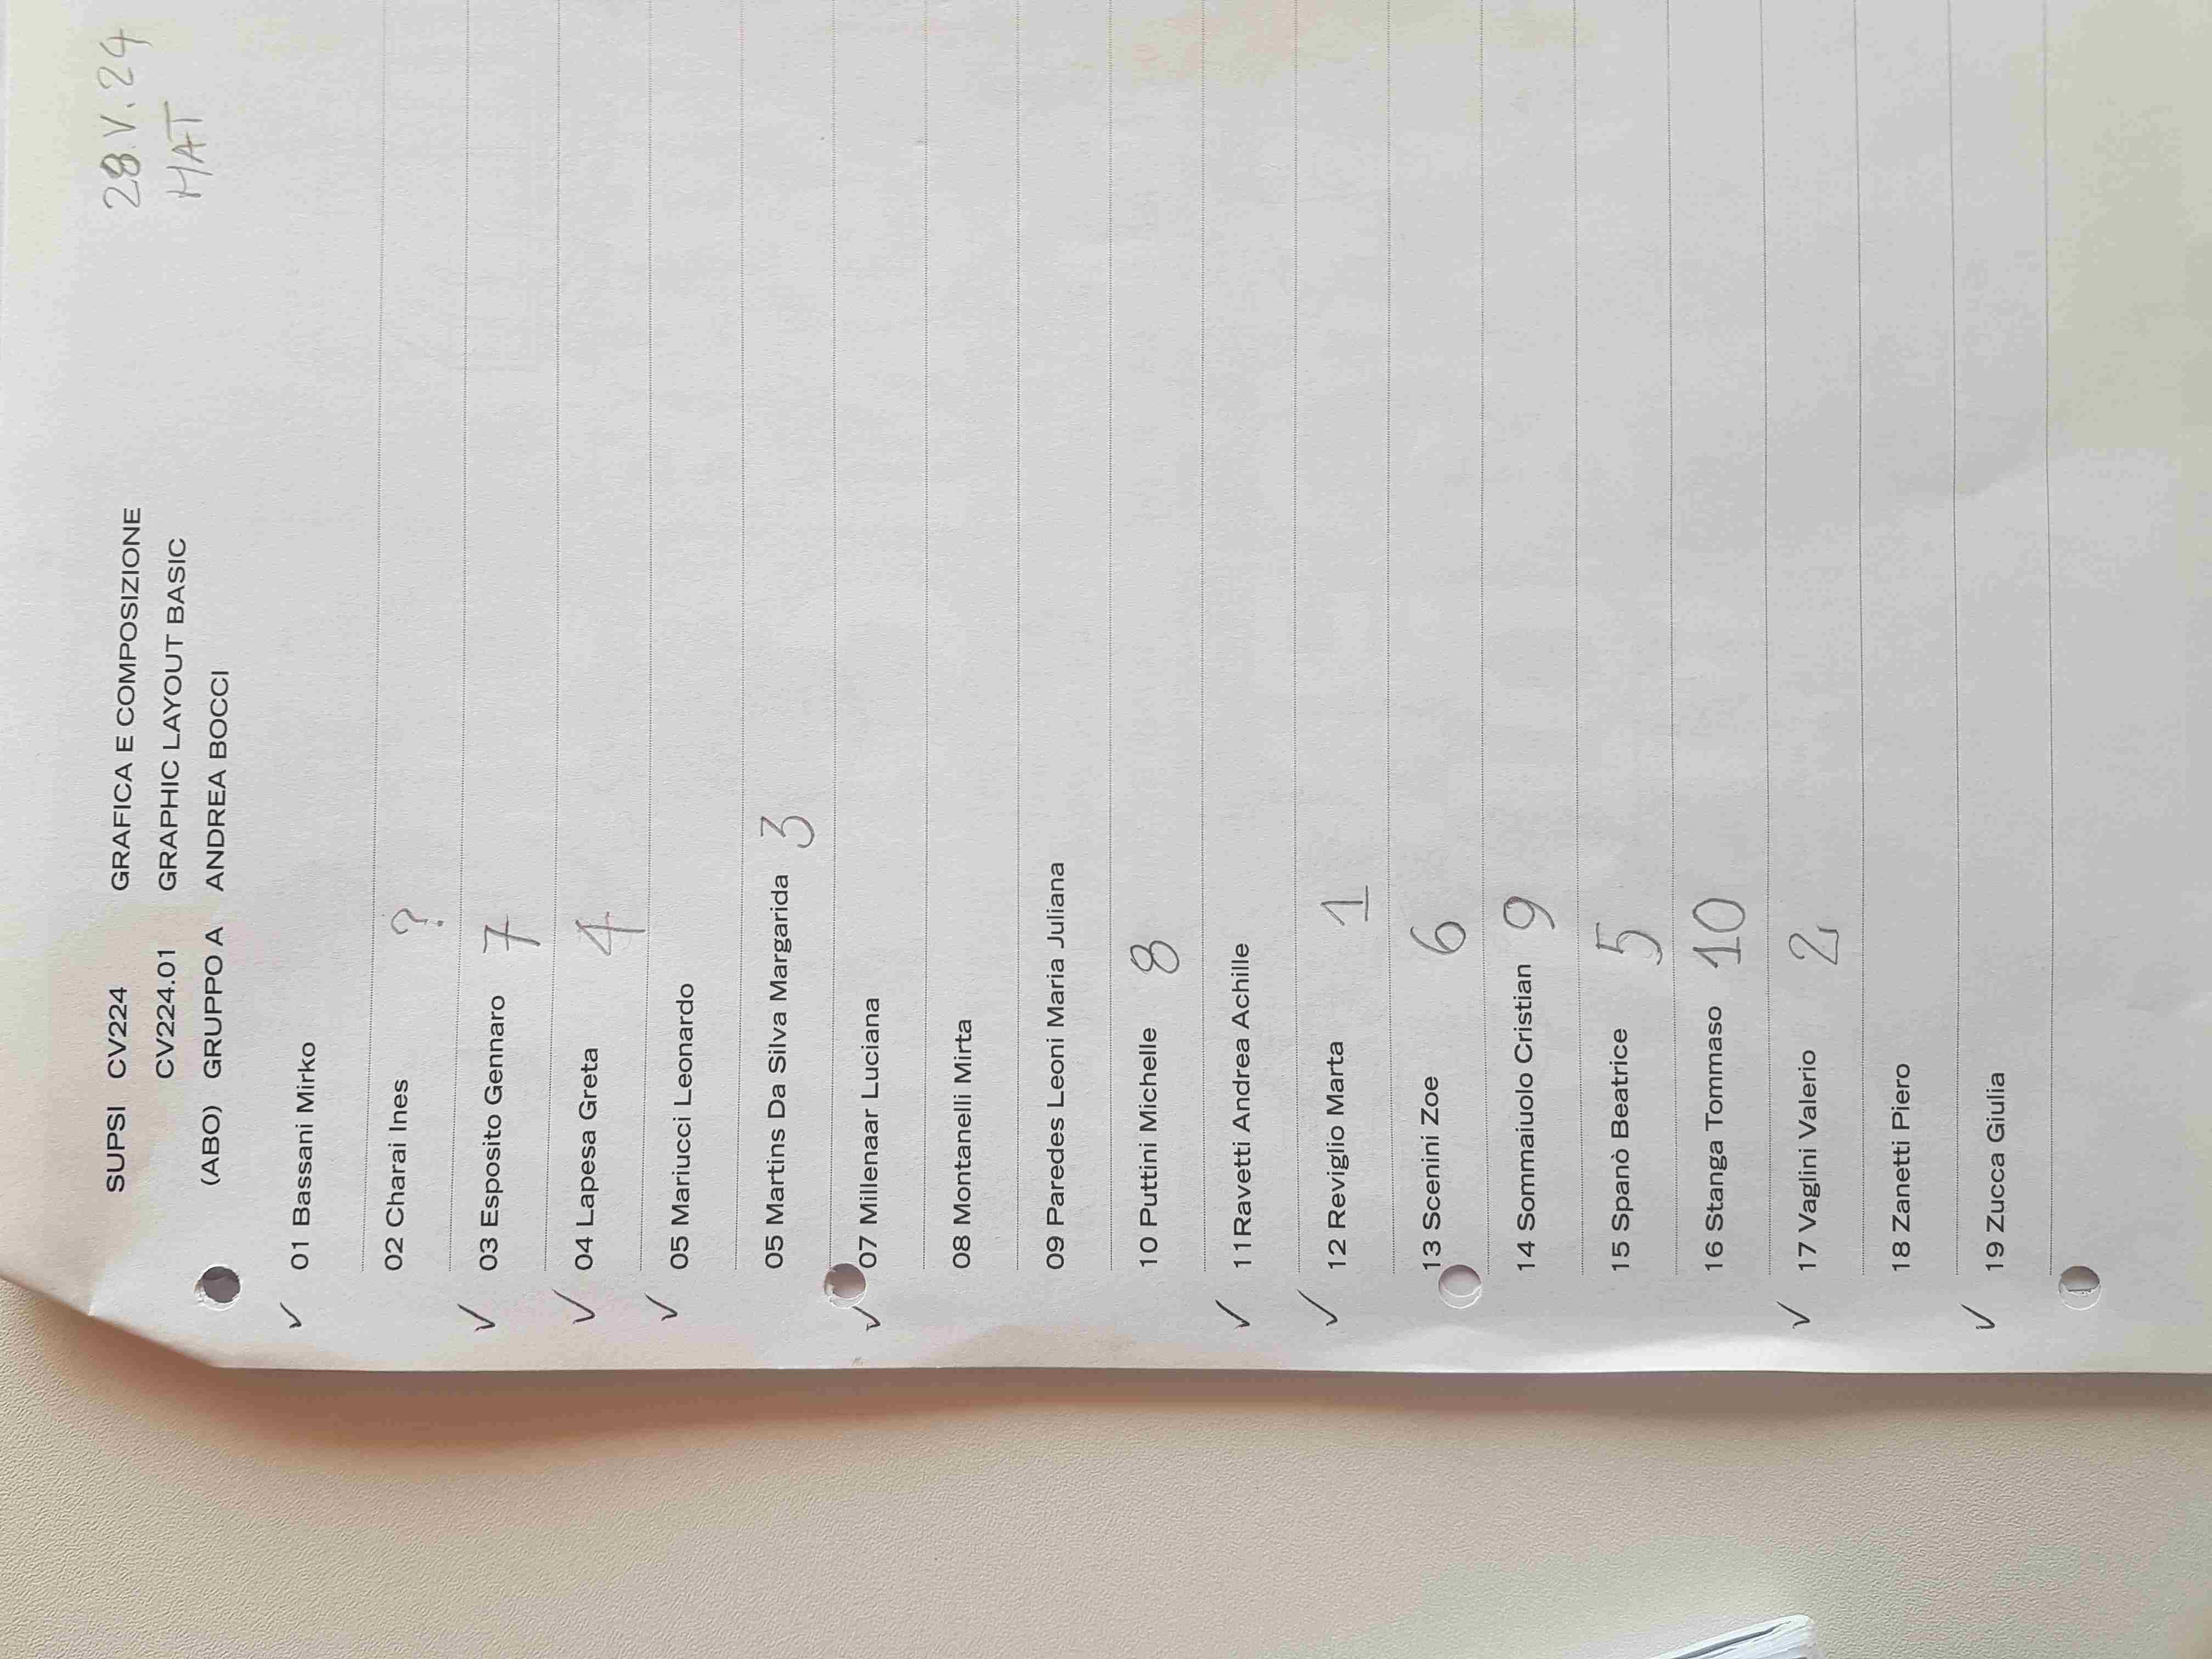 28.V.24
MAT
SUPSI CV224 GRAFICA E COMPOSIZIONE
CV224.01 GRAPHIC LAYOUT BASIC
(ABO) GRUPPO A ANDREA BOCCI
✓ 01 Bassani Mirko
02 Charai Ines ?
✓ 03 Esposito Gennaro 7
✓ 04 Lapesa Greta 4
✓ 05 Mariucci Leonardo
05 Martins Da Silva Margarida 3
✓ 07 Millenaar Luciana
08 Montanelli Mirta
09 Paredes Leoni Maria Juliana
10 Puttini Michelle 8
✓ 11Ravetti Andrea Achille
✓ 12 Reviglio Marta 1
13 Scenini Zoe 6
14 Sommaiuolo Cristian 9
15 Spanò Beatrice 5
16 Stanga Tommaso 10
✓ 17 Vaglini Valerio 2
18 Zanetti Piero
✓ 19 Zucca Giulia